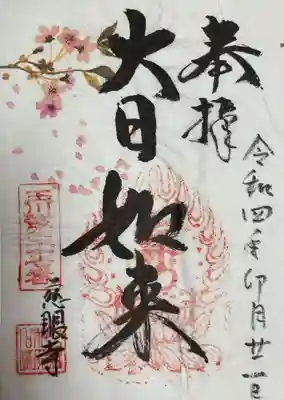 令和四年卯月廿一日
奉拝
大日如来
慈眼寺